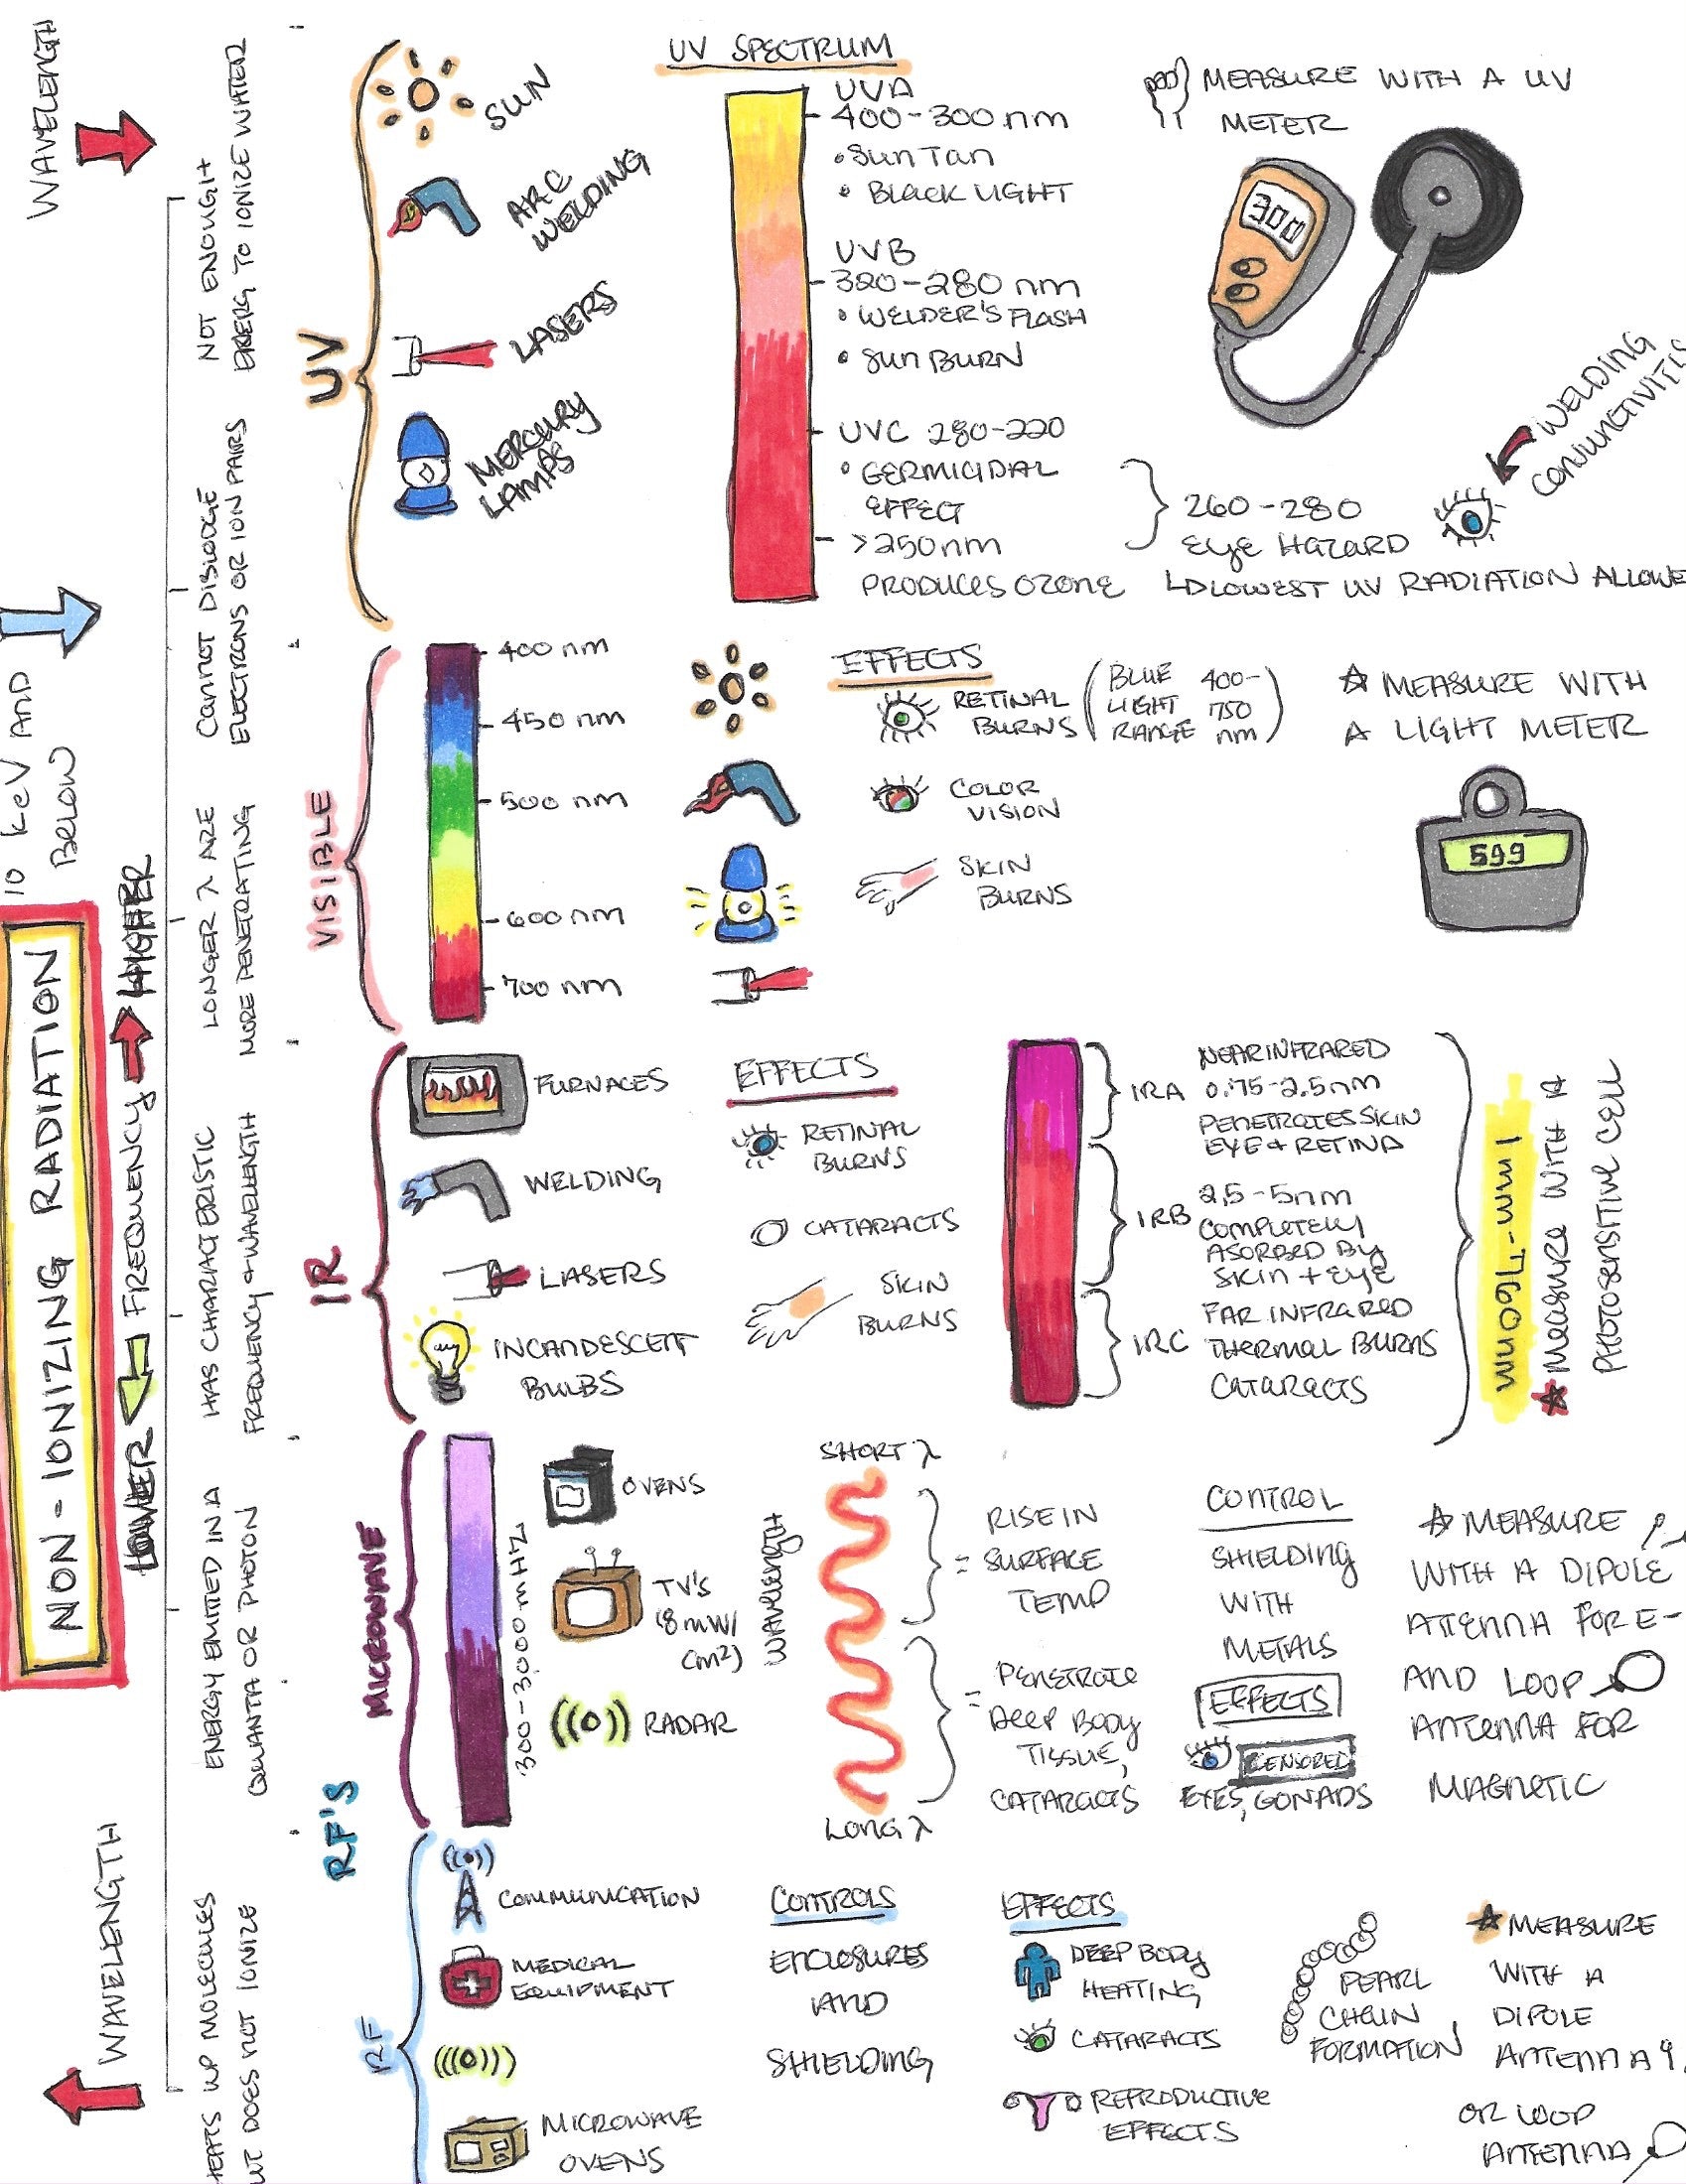 WAVELENGTH
10 KeV AND
BELOW
NON-IONIZING RADIATION
LOWER
FREQUENCY
HIGHER
WAVELENGTH
NOT ENOUGH
TO IONIZE WATER
CANNOT DISLODGE
ELECTRONS OR ION PAIRS
LONGER λ ARE
MORE PENETRATING
HAS CHARACTERISTIC
FREQUENCY + WAVELENGTH
ENERGY EMITTED IN A
QUANTA OR PHOTON
HEATS UP MOLECULES
DOES NOT IONIZE
UV
SUN
ARC
WELDING
LASERS
MERCURY
LAMPS
UV SPECTRUM
UVA
400-300 nm
• SUN TAN
• BLACK LIGHT
UVB
320-280 nm
• WELDER'S FLASH
• SUN BURN
UVC 280-220
• GERMICIDAL
EFFECT
>250nm
PRODUCES OZONE
260-280
EYE HAZARD
LOWEST UV RADIATION ALLOWE
MEASURE WITH A UV
METER
300
WELDING
CONJUNCTIVITIS
VISIBLE
400 nm
450 nm
500 nm
600 nm
700 nm
EFFECTS
RETINAL
BURNS
(BLUE 400-
LIGHT 750
RANGE nm)
COLOR
VISION
SKIN
BURNS
☆ MEASURE WITH
A LIGHT METER
599
IR
FURNACES
WELDING
LASERS
INCANDESCENT
BULBS
EFFECTS
RETINAL
BURNS
CATARACTS
SKIN
BURNS
IRA
NEAR INFRARED
0.75-2.5nm
PENETRATES SKIN
EYE + RETINA
IRB
2.5-5nm
COMPLETELY
ASORBED BY
SKIN + EYE
IRC
FAR INFRARED
THERMAL BURNS
CATARACTS
1 mm-760nm
☆ MEASURE WITH A
PHOTOSENSITIVE CELL
RF'S
MICROWAVE
300-3,000 mHz
OVENS
TV'S
(8 mW/
cm²)
RADAR
WAVELENGTH
SHORT λ
LONG λ
= RISE IN
SURFACE
TEMP
= PENETRATE
DEEP BODY
TISSUE,
CATARACTS
CONTROL
SHIELDING
WITH
METALS
EFFECTS
CENSORED
EYES, GONADS
☆ MEASURE
WITH A DIPOLE
ANTENNA FOR E-
AND LOOP
ANTENNA FOR
MAGNETIC
RF
COMMUNICATION
MEDICAL
EQUIPMENT
MICROWAVE
OVENS
CONTROLS
ENCLOSURES
AND
SHIELDING
EFFECTS
DEEP BODY
HEATING
CATARACTS
REPRODUCTIVE
EFFECTS
PEARL
CHAIN
FORMATION
☆ MEASURE
WITH A
DIPOLE
ANTENNA
OR LOOP
ANTENNA